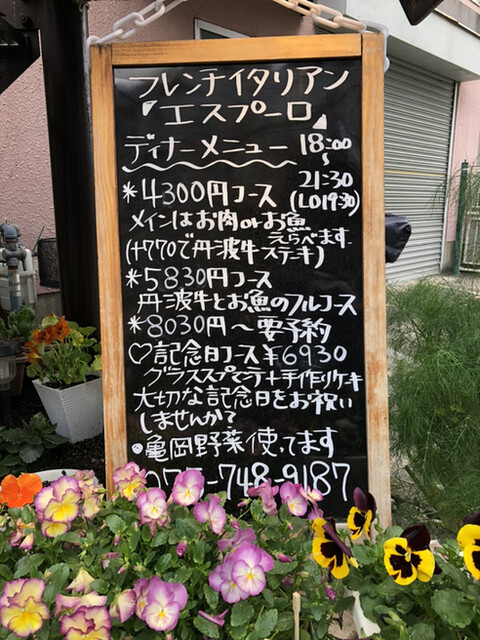 フレンチイタリアン
『エスプーロ』
ディナーメニュー 18:00
～
21:30
(LO19:30)
*4300円コース
メインはお肉orお魚
えらべます
(+770で丹波牛ステーキ)
*5830円コース
丹波牛とお魚のフルコース
*8030円～要予約
♡記念日コース¥6930
グラススプマンテ+手作りケーキ
大切な記念日をお祝い
しませんか？
•亀岡野菜使ってます
075-748-9187